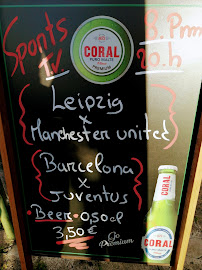 Sports
TV
CORAL
PURO MALTE
PREMIUM
8.Pm
20.h
Leipzig
x
Manchester united
Barcelona
x
Juventus
Beer 0,50cl
3,50€
Go
Premium
CORAL
CORAL